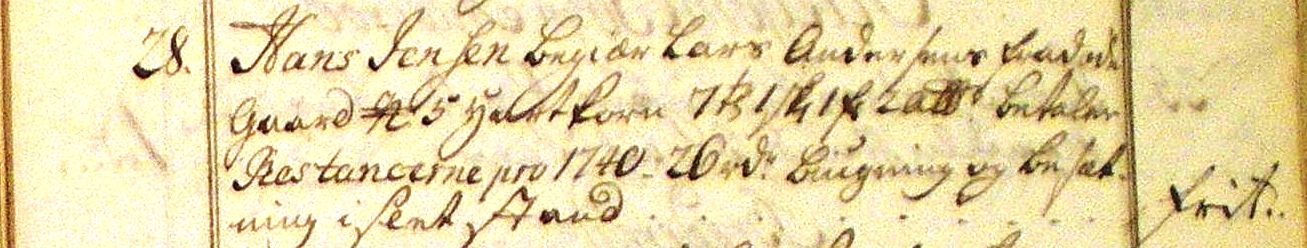 28. Hans Jensen begiær Lars Andersens fradøde
Gaard № 5 Hartkorn 7 td 1 sk 1 fk 2 alb betaler
Restancerne pro 1740. 26 rd. Bÿgning og besæt-
ning i slet stand . . . . . . . . . frit.